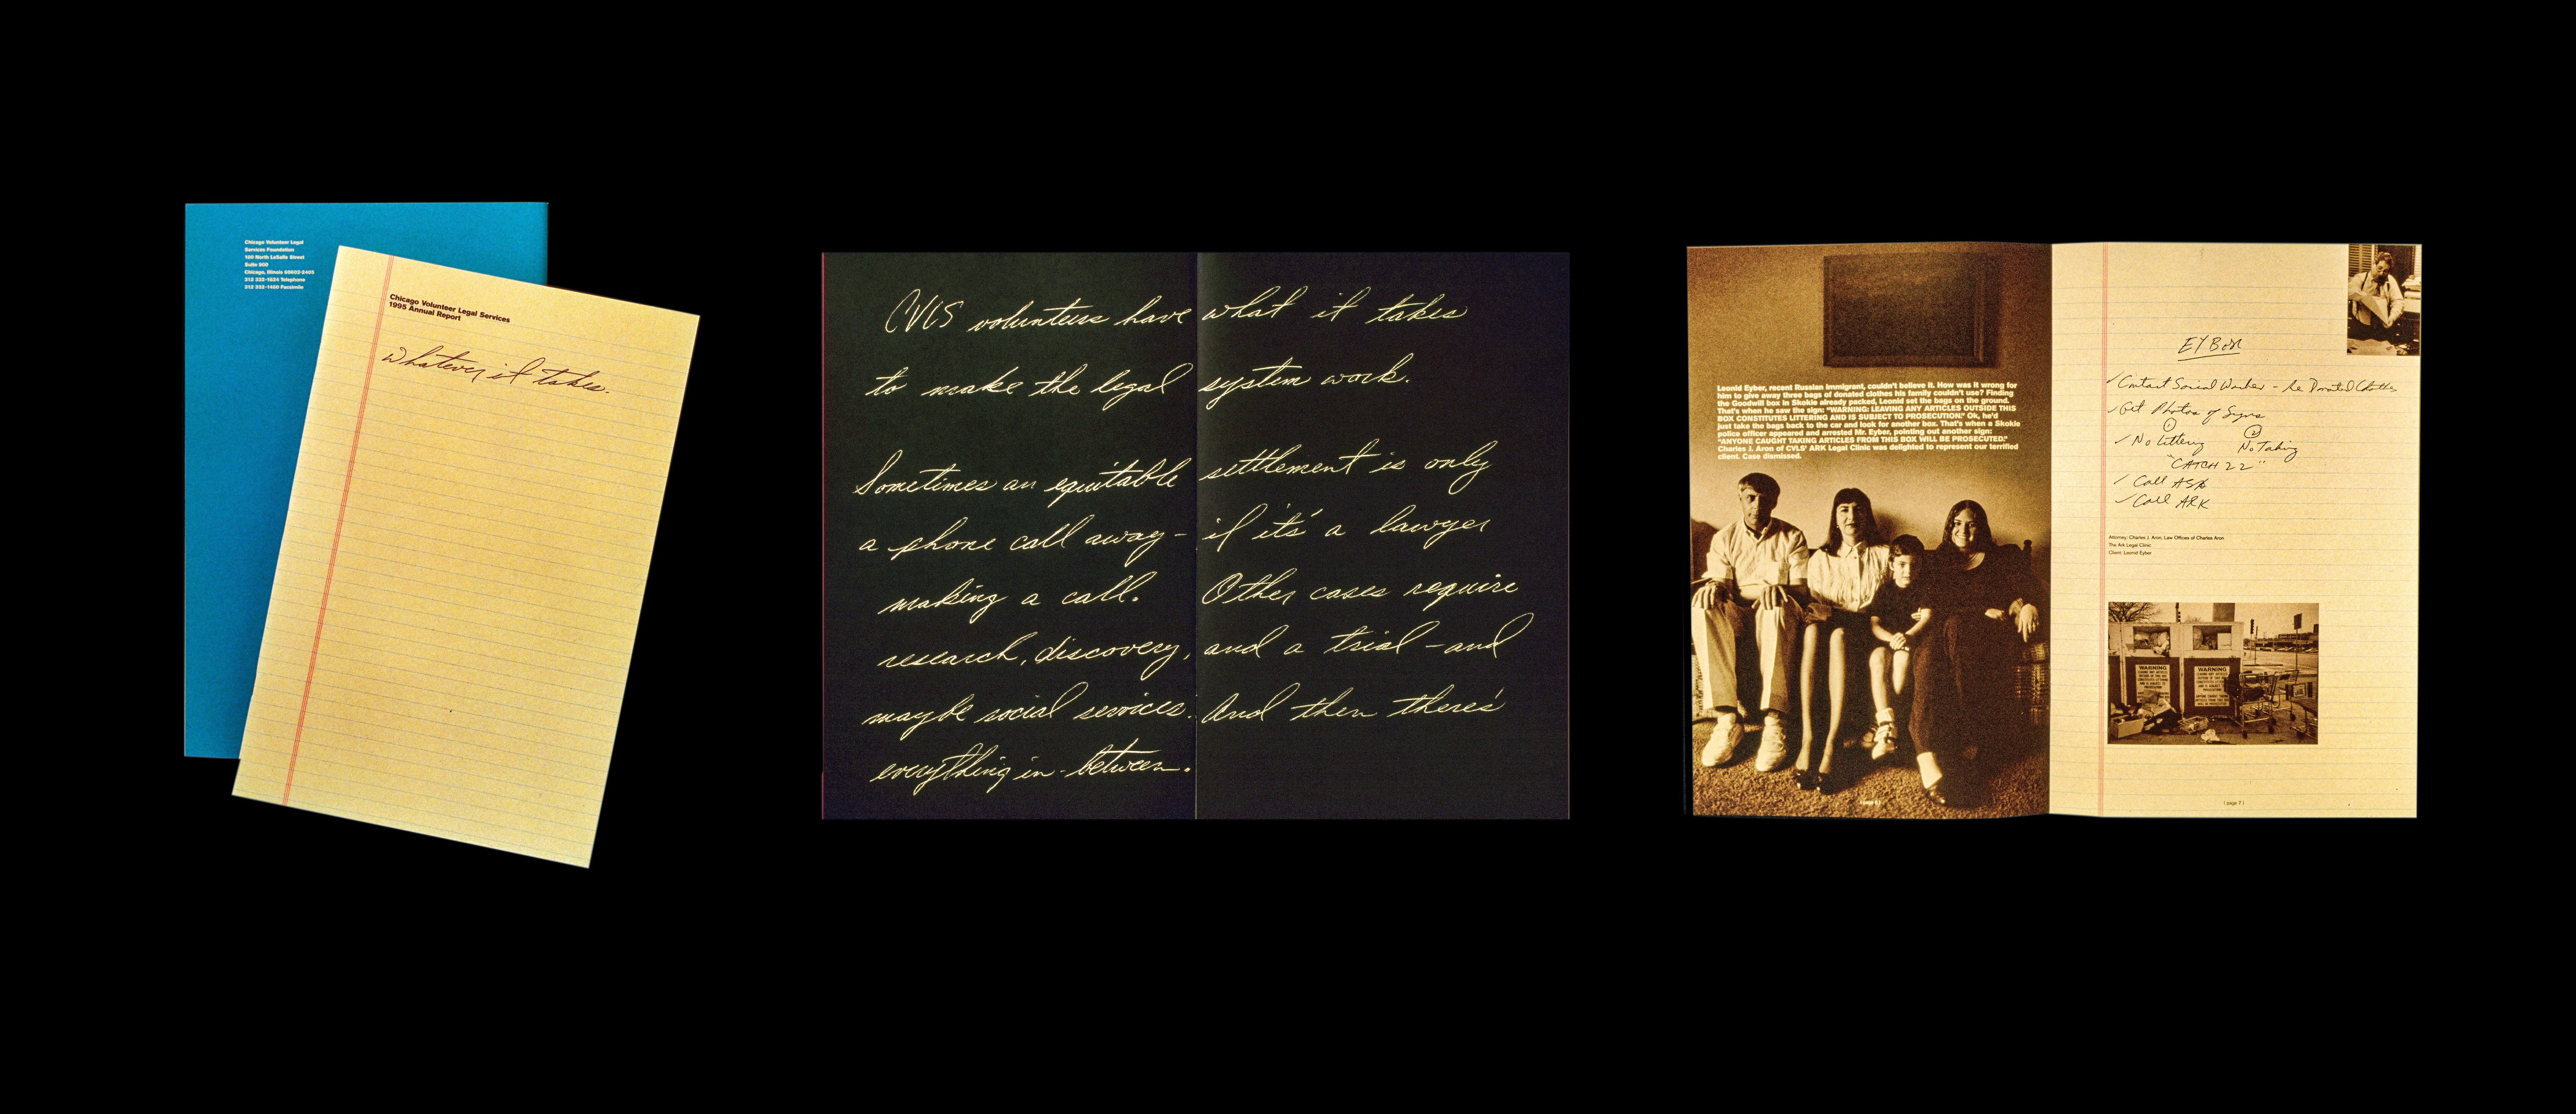 Chicago Volunteer Legal
Services Foundation
100 North LaSalle Street
Suite 900
Chicago, Illinois 60602-2405
312 332-1624 Telephone
312 332-1460 Facsimile
Chicago Volunteer Legal Services
1995 Annual Report
Whatever it takes.
CVLS volunteers have what it takes
to make the legal system work.
Sometimes an equitable settlement is only
a phone call away- if it's a lawyer
making a call. Other cases require
research, discovery, and a trial -and
maybe social services. And then there's
everything in-between.
Leonid Eyber, recent Russian immigrant, couldn't believe it. How was it wrong for
him to give away three bags of donated clothes his family couldn't use? Finding
the Goodwill box in Skokie already packed, Leonid set the bags on the ground.
That's when he saw the sign: "WARNING: LEAVING ANY ARTICLES OUTSIDE THIS
BOX CONSTITUTES LITTERING AND IS SUBJECT TO PROSECUTION." Ok, he'd
just take the bags back to the car and look for another box. That's when a Skokie
police officer appeared and arrested Mr. Eyber, pointing out another sign:
"ANYONE CAUGHT TAKING ARTICLES FROM THIS BOX WILL BE PROSECUTED."
Charles J. Aron of CVLS' ARK Legal Clinic was delighted to represent our terrified
client. Case dismissed.
EYBER
Contact Social Worker - re Donated Clothes
Get Photos of Signs
1 2
No Littering No Taking
"CATCH 22"
Call ASA
Call ARK
Attorney: Charles J. Aron, Law Offices of Charles Aron
The Ark Legal Clinic
Client: Leonid Eyber
WARNING WARNING
( page 6 )
( page 7 )